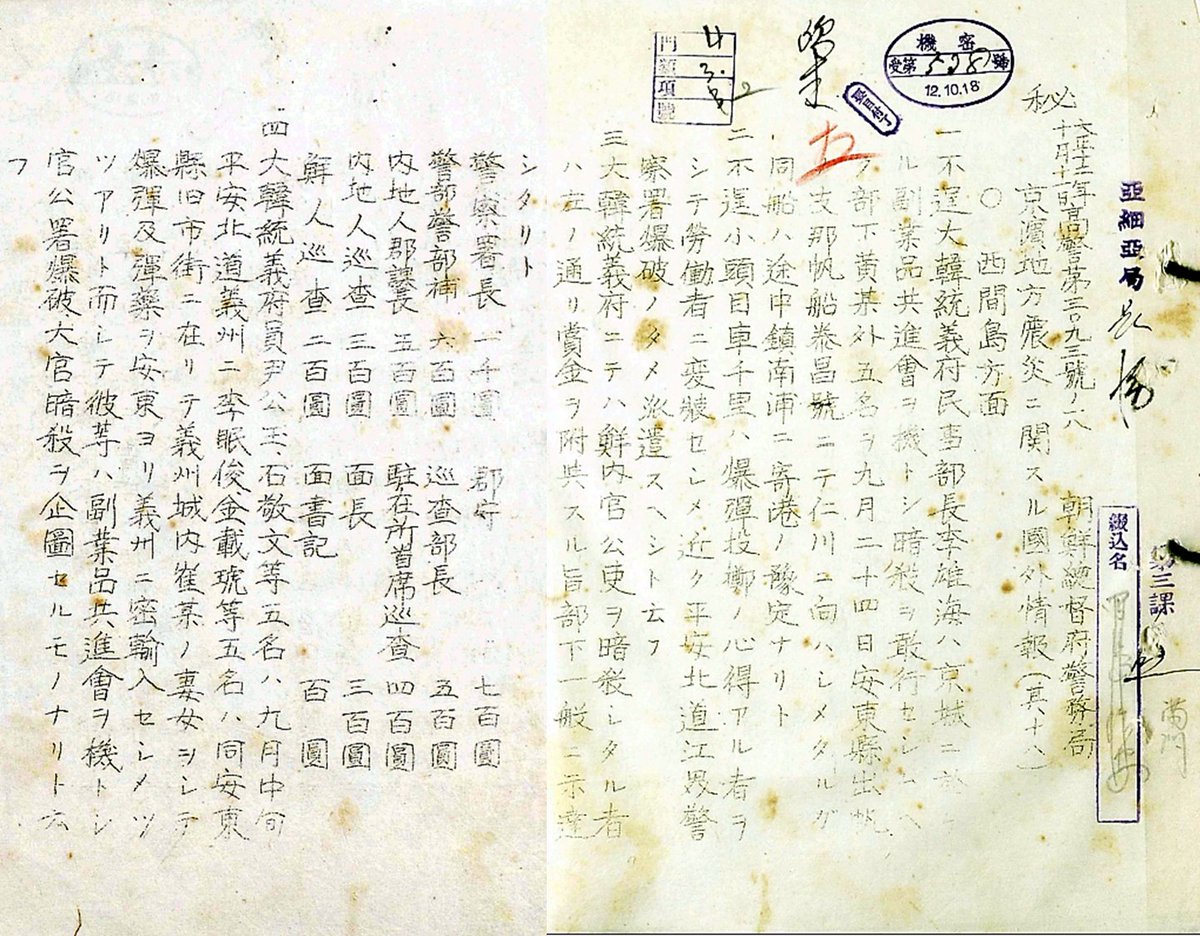 機密
受第528號
12.10.18
門
類
項
號
亞細亞局
第三課
綴込名
秘
大正十二年高警第三〇九三號ノ一八
十月十一日
朝鮮總督府警務局
京濱地方震災ニ関スル國外情報(其十八)
〇西間島方面
一不逞大韓統義府民事部長李雄海ハ京城ニ於ケ
ル副業品共進會ヲ機トシ暗殺ヲ敢行セシムヘ
ク部下黄某外五名ヲ九月二十四日安東縣出帆
ノ支那帆船泰昌號ニテ仁川ニ向ハシメタルガ
同船ハ途中鎮南浦ニ寄港ノ豫定ナリト
二不逞小頭目車千里ハ爆彈投擲ノ心得アル者ヲ
シテ勞働者ニ変裝セシメ近ク平安北道江界警
察署爆破ノタメ派遣スヘシト云フ
三大韓統義府ニテハ鮮内官公吏ヲ暗殺シタル者
ハ左ノ通リ賞金ヲ附與スル旨部下一般ニ示達
シタリト
警察署長 一千圓 郡守 七百圓
警部警部補 六百圓 巡查部長 五百圓
内地人郡課長 五百圓 駐在所首席巡查 四百圓
内地人巡查 三百圓 面長 三百圓
鮮人巡查 二百圓 面書記 百圓
四大韓統義府員尹公三、石敬文等五名ハ九月中旬
平安北道義州ニ李眠俊金載琥等五名ハ同安東
縣旧市街ニ在リテ義州城内崔某ノ妻女ヲシテ
爆彈及彈藥ヲ安東ヨリ義州ニ密輸入セシメツ
ツアリト而シテ彼等ハ副業品共進會ヲ機トシ
官公署爆破大官暗殺ヲ企圖セルモノナリト云
フ